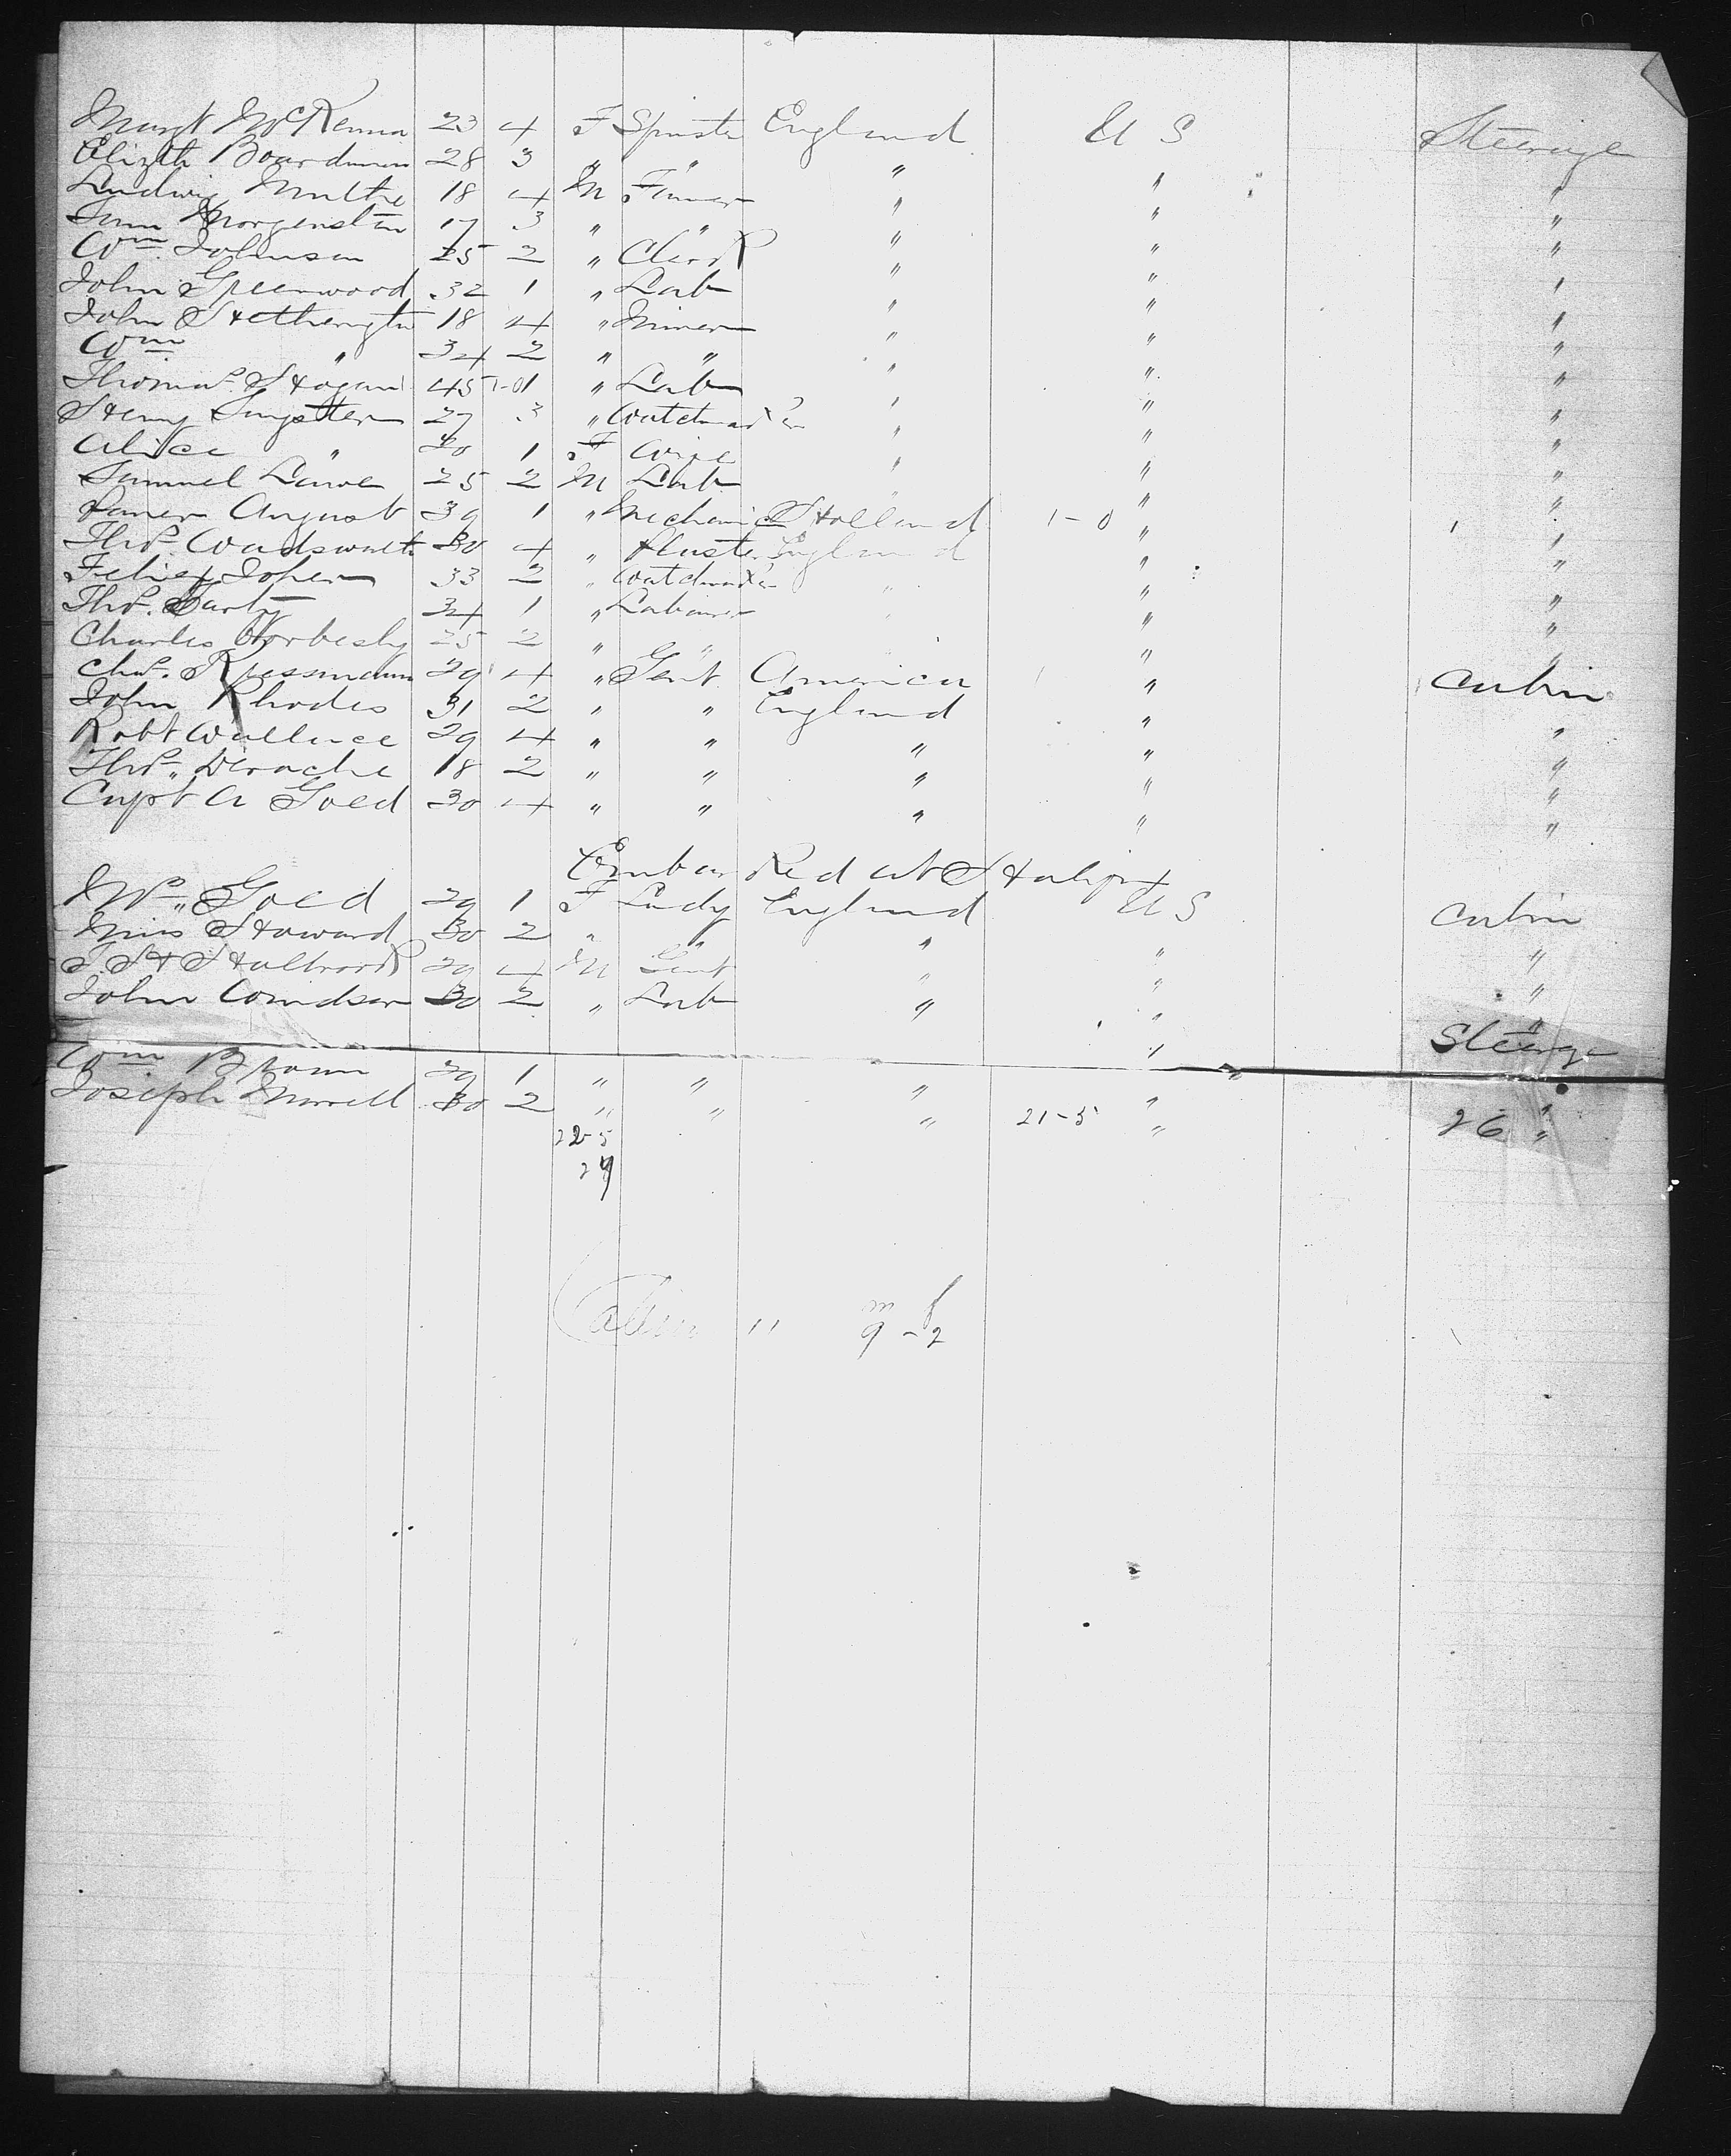 Margt McKenna 23 4 F Spinster England U S Steerage
Elizth Boardman 28 3 " " " " "
Ludwig Multhe 18 4 M Farmer " " "
Morgenstern 17 3 " " " " "
Wm. Johnson 25 2 " Clerk " " "
John Greenwood 32 1 " Lab " " "
John Hetherington 18 4 " Miner " " "
Wm " 34 2 " " " " "
Thomas Hogan 45 1-0 1 " Lab " " "
Henry 27 3 " Watchmaker " " "
Alice " 20 1 F Wife " " "
Samuel Lowe 25 2 M Lab " " "
August 39 1 " Mechanic Holland 1-0 " 1 "
Thos. Wadsworth 30 4 " Plaster England " "
33 2 " Watchmaker " " "
Thos. 34 1 " Labourer " " "
Charles 25 2 " " " " "
Chas. 29 4 " Gent America " Cabin
John Rhodes 31 2 " " England " "
Robt Wallace 29 4 " " " " "
Thos. Deroche 18 2 " " " " "
Capt A Goed 30 4 " " " " "
Embarked at Halifax
Mrs. Goed 29 1 F Lady England U S Cabin
Miss Howard 30 2 " " " " "
Holbrook 29 4 M Gent " " "
John Davidson 30 2 " Lab " " " Steerage
Wm Brown 29 1 " " " " "
Joseph Morrell 30 2 " " " 21-5 " 26 "
22-5
27
Cabin 11 m f
9-2